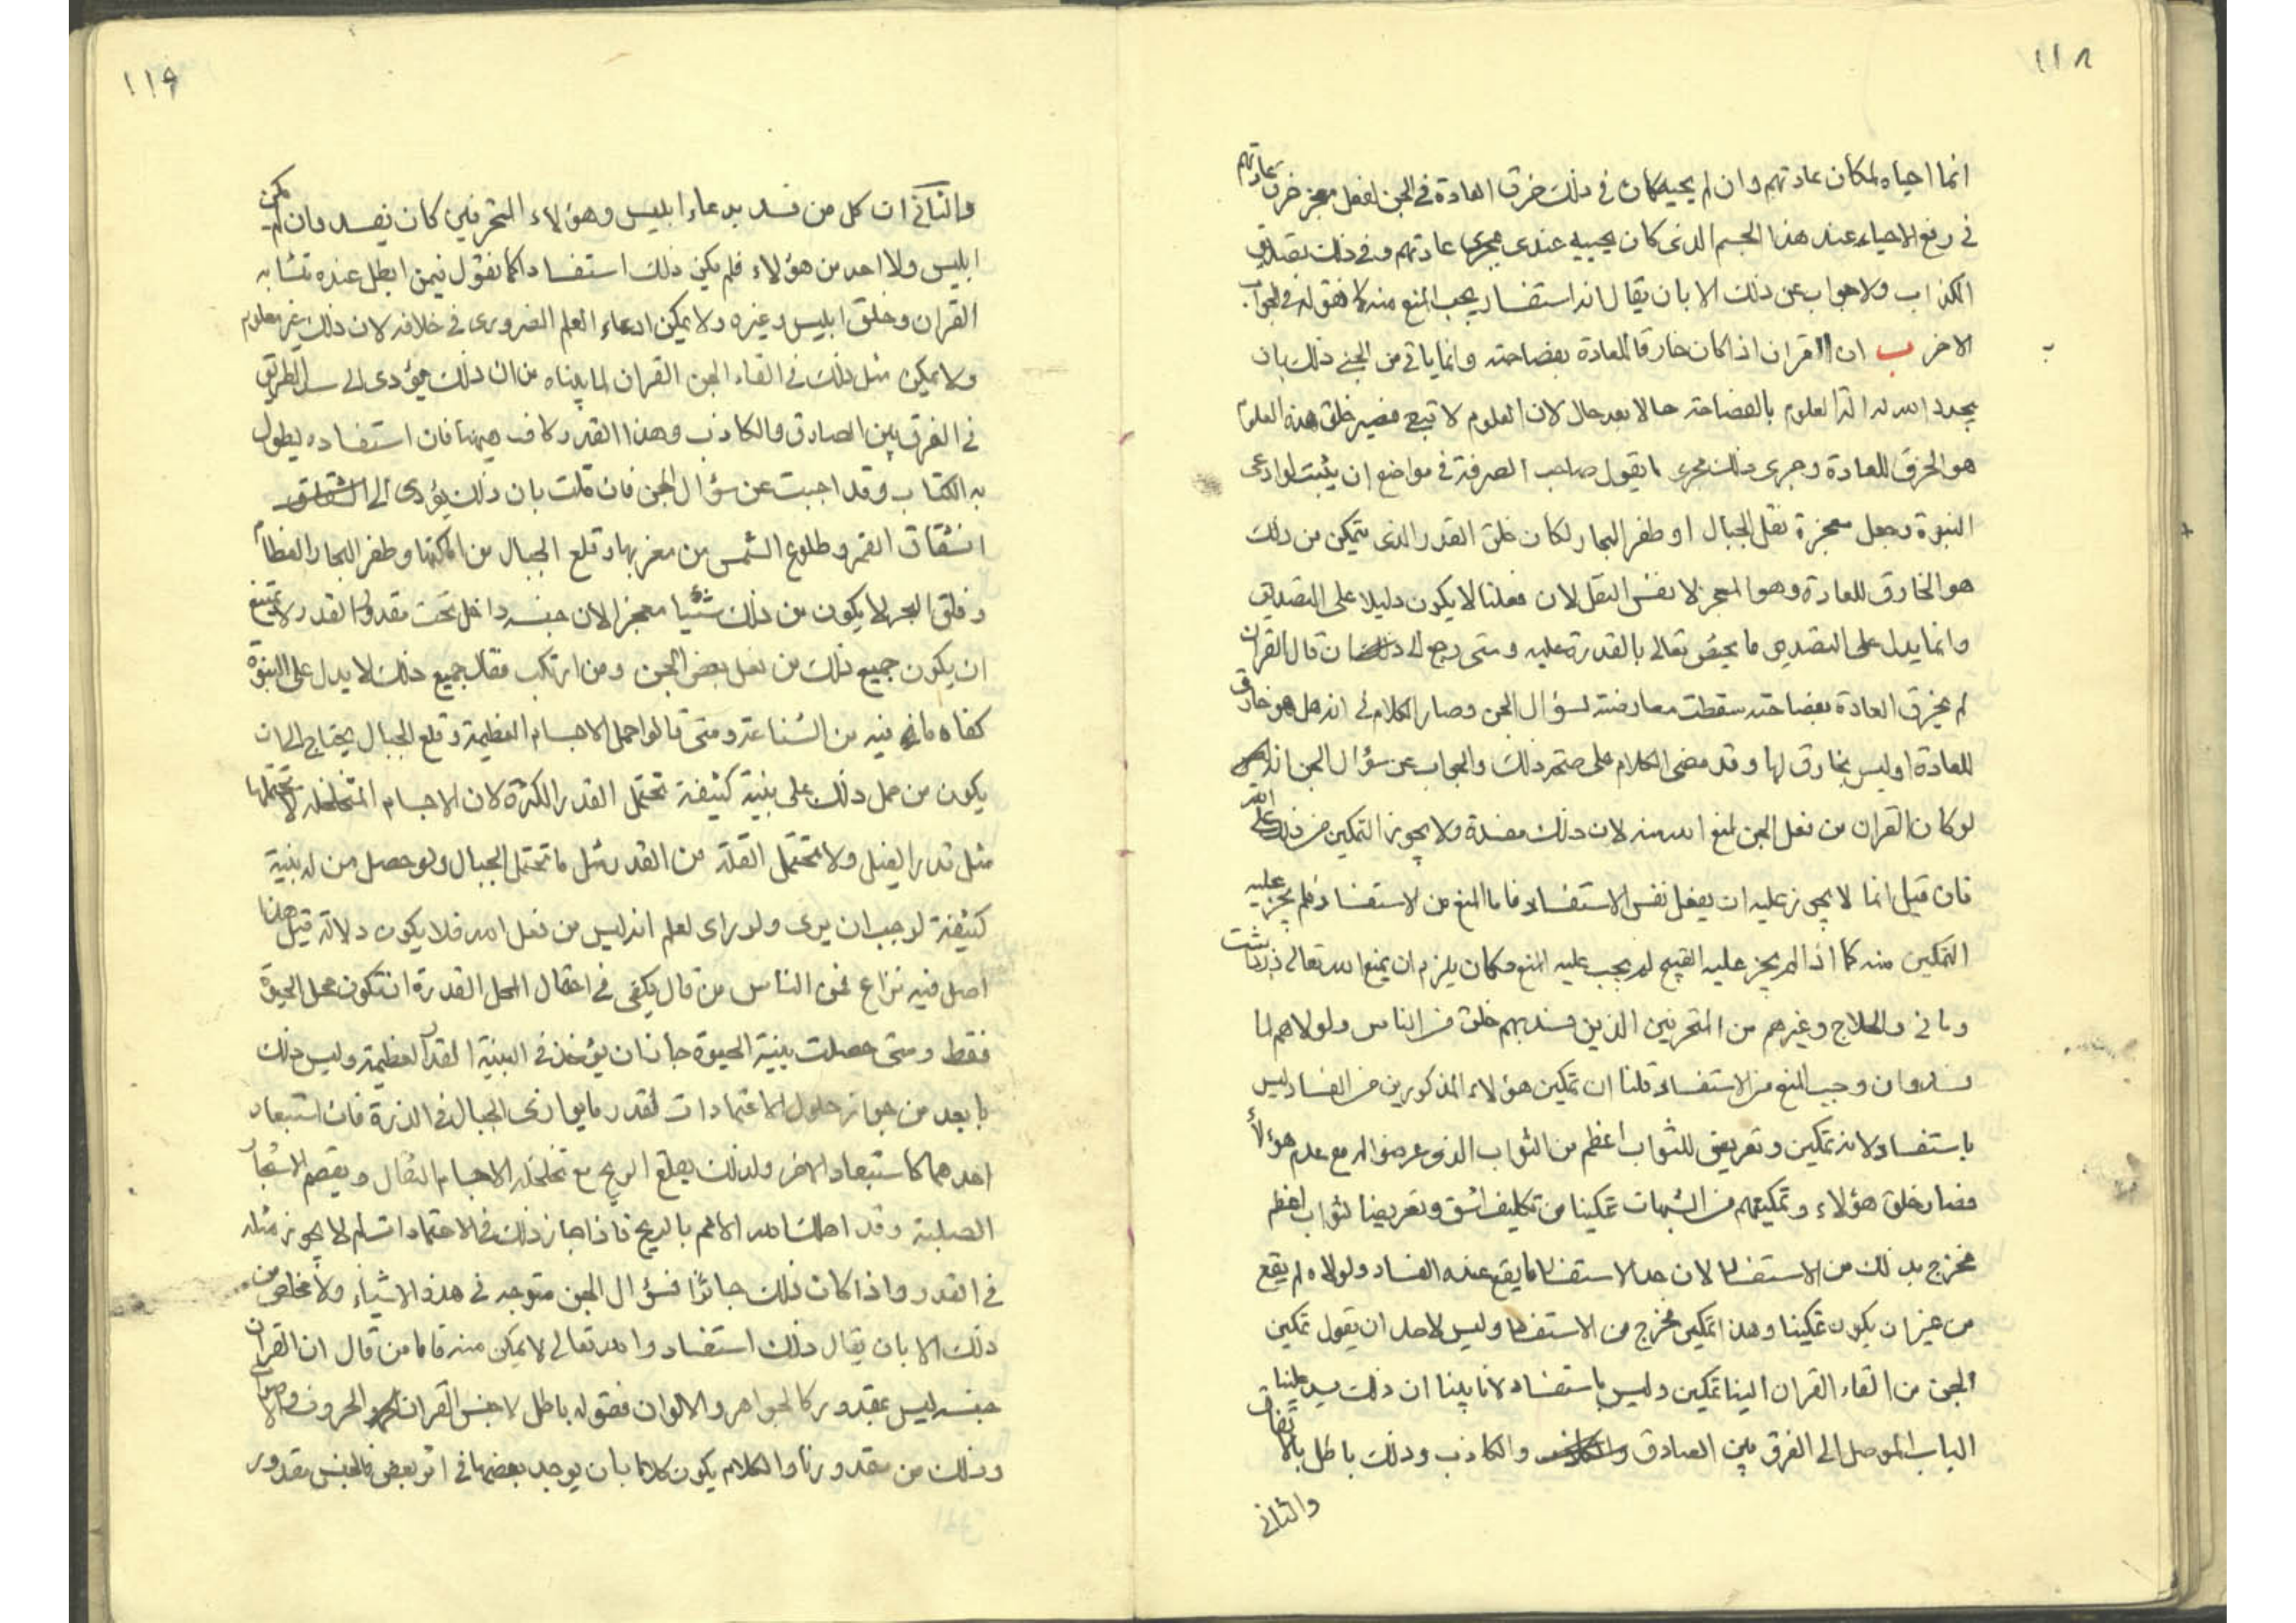 ١١٨
انما احياه لمكان عادتهم وان لم يحيه كان في ذلك خرق العادة في الجن لفعل معجز خرق عادتهم
في رفع الاحياء عند هذا الجسم الذي كان يحييه عندي مجرى عادتهم وفي ذلك تصديق
الكذاب ولا جواب عن ذلك الا بان يقال انه استفساد يجب المنع منه كا فقوله في الجواب
الاخر ب ان القران اذا كان خارقا للعادة بفصاحته وانما ياتي من الجني ذلك بان
يجدد الله له العلوم بالفصاحة حالا بعد حال لان العلوم لا تبقى فيصير خلق هذه العلوم
هو الخرق للعادة وجرى ذلك مجرى ما يقول صاحب الصرفة في مواضع ان يثبت لو ادعى
النبوة وجعل معجزة نقل الجبال او طفر البحار لكان خلق القدر الذي يتمكن من ذلك
هو الخارق للعادة وهو المعجز لا نفس النقل لان فعلنا لا يكون دليلا على التصديق
وانما يدل على التصديق ما يختص تعالى بالقدرة عليه ومتى رجع الى ان قال القران
لم يخرق العادة بفصاحته سقطت معارضته لسؤال الجن وصار الكلام في انه هل هو خارق
للعادة او ليس بخارق لها وقد مضى الكلام على صحة ذلك والجواب عن سؤال الجن انه
لو كان القران من فعل الجن لمنع الله منه لان ذلك مفسدة ولا يجوز التمكين من ذلك على الله
فان قيل انما لا يجوز عليه ان يفعل نفس الاستفساد فاما المنع من الاستفساد فلم يجز عليه
التمكين منه كما اذا لم يجز عليه القبيح لم يجب عليه المنع وكان يلزم ان يمنع الله تعالى زردشت
وماني والحلاج وغيرهم من المتخرقين الذين فسد بهم خلق من الناس ولولاهم لما
فسدوا وان وجب المنع من الاستفساد قلنا ان تمكين هؤلاء المذكورين من الفساد ليس
باستفساد لانه تمكين وتعريض للثواب اعظم من الثواب الذي عرضوا له مع عدم هؤلاء
فصار خلق هؤلاء وتمكينهم من الشبهات تمكينا من تكليف اشق وتعريضا لثواب اعظم
فخرج بذلك من الاستفساد لان حد الاستفساد ما يقع عنده الفساد ولولاه لم يقع
من غير ان يكون تمكينا وهذا تمكين فخرج من الاستفساد وليس لاحد ان يقول تمكين
الجن من القاء القران الينا تمكين وليس باستفساد لانا بينا ان ذلك يسد علينا
الباب الموصل الى الفرق بين الصادق والكاذب وذلك باطل بالاتفاق
والثاني
١١٩
والثاني ان كل من فسد بدعاء ابليس وهؤلاء المتخرقين كان يفسد وان لم يكن
ابليس ولا احد من هؤلاء فلم يكن ذلك استفسادا كما نقول فيمن ابطل عنده تشابه
القران وخلق ابليس وغيره ولا يمكن ادعاء العلم الضروري في خلافه لان ذلك غير معلوم
ولا يمكن مثل ذلك في القاء الجن القران لما بيناه من ان ذلك مؤدي الى سد الطريق
في الفرق بين الصادق والكاذب وهذا القدر كاف هيهنا فان استفساده يطول
به الكتاب وقد اجبت عن سؤال الجن فان قلت بان ذلك يؤدى الى
انشقاق القمر وطلوع الشمس من مغربها وقلع الجبال من اماكنها وطفر البحار العظام
وفلق البحر لا يكون من ذلك شيئا معجزا لان جنسه داخل تحت مقدور القدر ولا يمتنع
ان يكون جميع ذلك من فعل بعض الجن ومن ارتكب فقال جميع ذلك لا يدل على النبوة
كفاه ما فيه من الشناعة ومتى قالوا حمل الاجسام العظيمة وقلع الجبال يحتاج الى ان
يكون من حمل ذلك على بنية كثيفة تحتمل القدر الكثرة لان الاجسام المتخلخلة لا تحتملها
مثل قدر الفيل ولا تحتمل القلة من القدر مثل ما تحتمل الجبال ولو حصل من له بنية
كثيفة لوجب ان يرى ولو راى لعلم انه ليس من فعل الله فلا يكون دلالة قيل هذا
اصل فيه نزاع فمن الناس من قال يكفي في احتمال المحل القدرة ان تكون محل الحيوة
فقط ومتى حصلت بنية الحيوة جاز ان يؤخذ في البنية القدر العظيمة وليس ذلك
بابعد من جواز حلول الاعتمادات لقدر ما يوازى الجبال في الذرة فان استبعاد
احدهما كاستبعاد الاخر ولذلك يقلع الريح مع تخلخله الاجسام الثقال ويقصم الاشجار
الصلبة وقد اهلك الله الامم بالريح فاذا جاز ذلك في الاعتمادات لم لا يجوز مثله
في القدر واذا كان ذلك جائزا فسؤال الجن متوجه في هذه الاشياء ولا مخلص من
ذلك الا بان يقال ذلك استفساد والله تعالى لا يمكن منه فاما من قال ان القران
جنسه ليس بمقدور كالجواهر والالوان فقوله باطل لا جنس القران الحروف والاصوات
وذلك من مقدورنا والكلام يكون كلاما بان يوجد بعضها في اثر بعض فالجنس مقدور